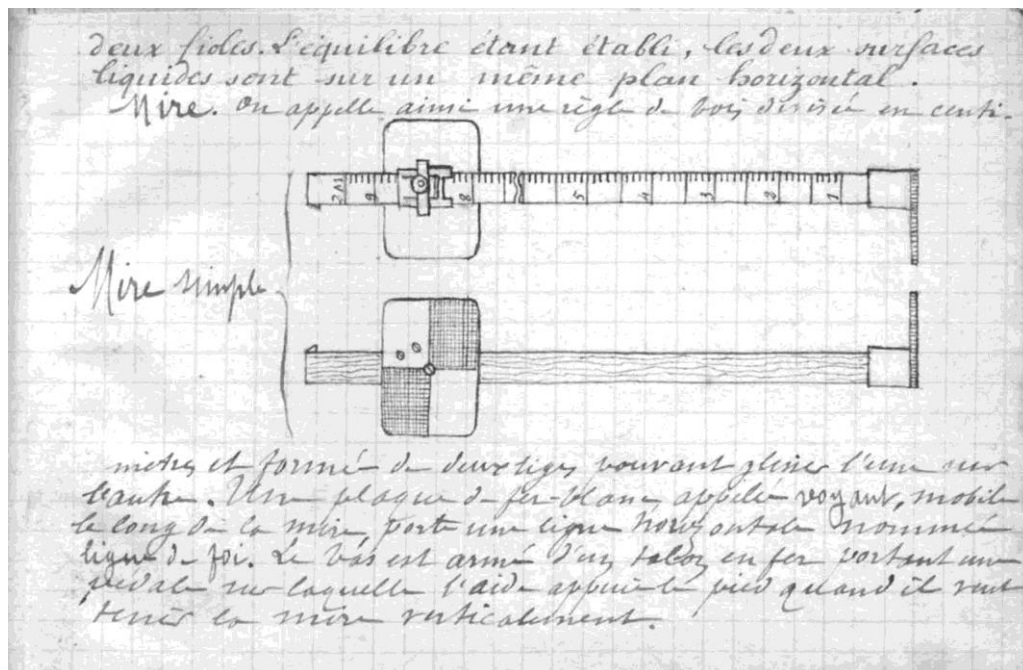 deux fioles. L'équilibre étant établi, les deux surfaces
liquides sont sur un même plan horizontal.
Mire. On appelle ainsi une règle de bois divisée en centi-
9 8 5 4 3 2 1
Mire simple
mètres et formée de deux tiges pouvant glisser l'une sur
l'autre. Une plaque de fer-blanc, appelée voyant, mobile
le long de la mire, porte une ligne horizontale nommée
ligne de foi. Le bas est armé d'un talon en fer portant une
pédale sur laquelle l'aide appuie le pied quand il veut
tenir la mire verticalement.